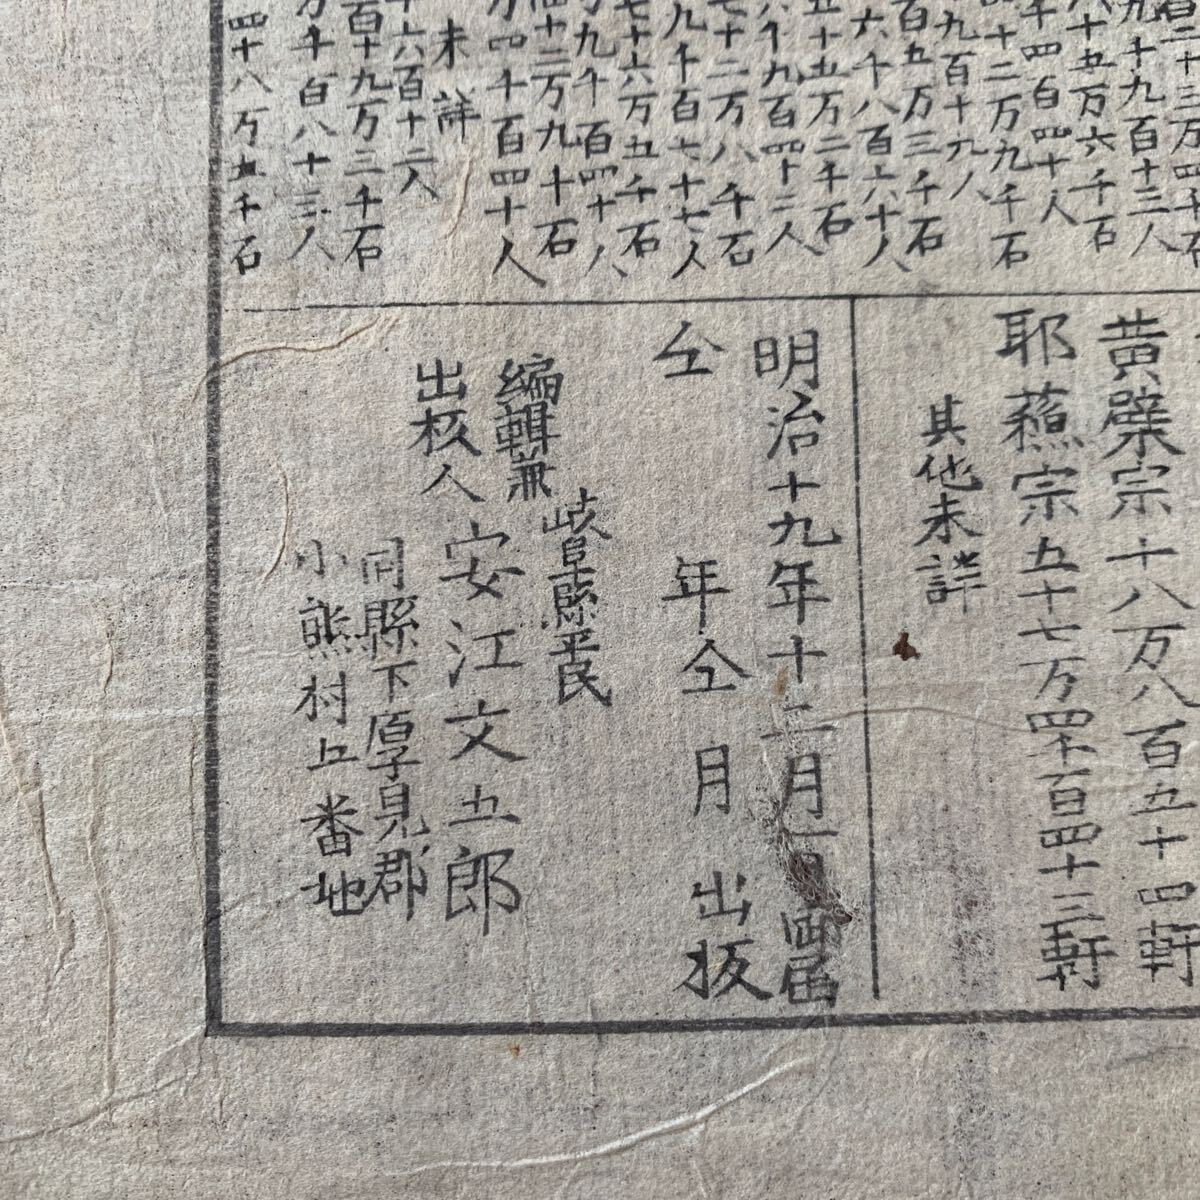 百二十三万四千石
九千九百十三人
八十五万六千石
千四百四十人
十二万九千石
九百十九人
百五万三千石
六千八百六十人
五十五万二千石
千九百四十二人
七十二万八千石
九千百七十七人
七十六万五千石
九千百四十人
四十二万九千石
万四千百四十人
未詳
千六百十二人
百十九万三千石
万千百八十三人
四十八万五千石
黄檗宗十八万八百五十四軒
耶蘇宗五十七万四千百四十三軒
其他未詳
明治十九年十二月一日御届
仝年仝月出板
岐阜縣平民
編輯兼
出板人 安江文五郎
同縣下厚見郡
小熊村五番地